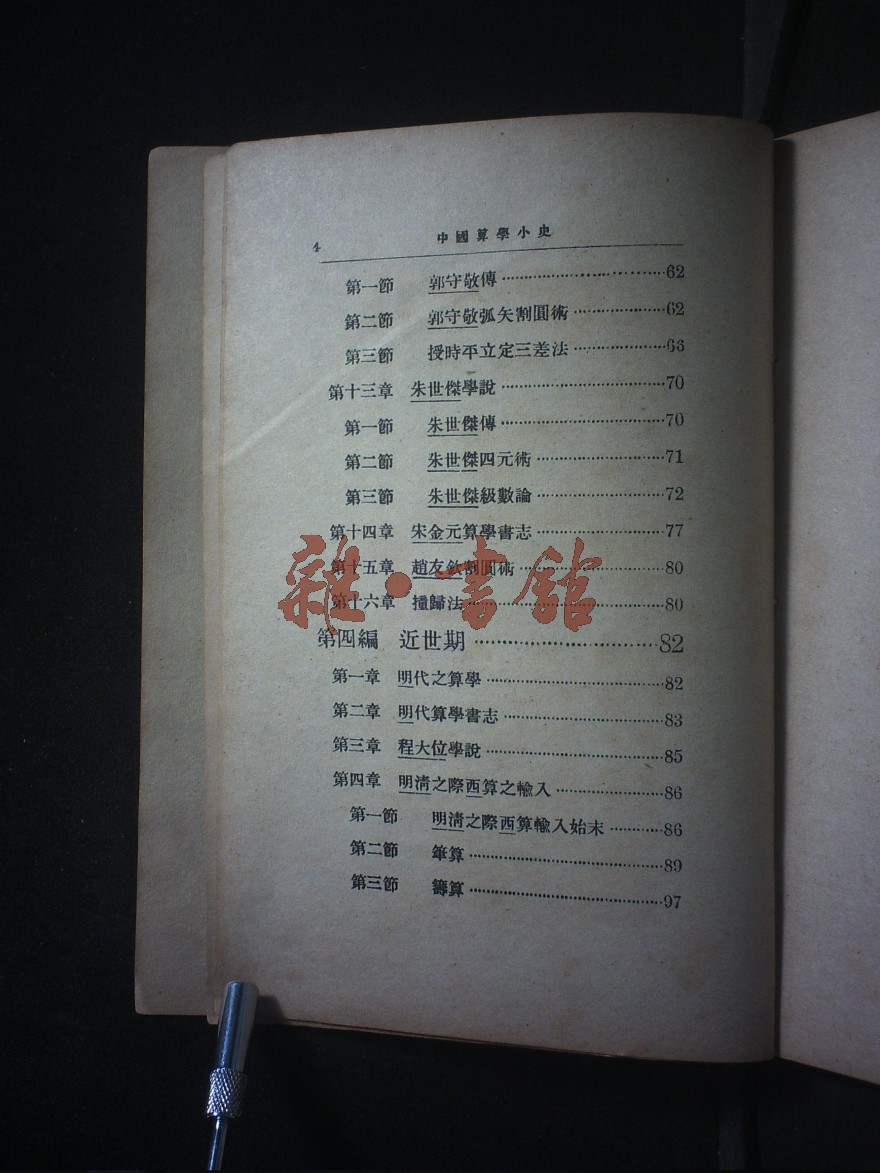 4 中國算學小史
第一節 郭守敬傳……62
第二節 郭守敬弧矢割圓術……62
第三節 授時平立定三差法……66
第十三章 朱世傑學說……70
第一節 朱世傑傳……70
第二節 朱世傑四元術……71
第三節 朱世傑級數論……72
第十四章 宋金元算學書志……77
第十五章 趙友欽割圓術……80
第十六章 撞歸法……80
雜·書館
第四編 近世期……82
第一章 明代之算學……82
第二章 明代算學書志……83
第三章 程大位學說……85
第四章 明清之際西算之輸入……86
第一節 明清之際西算輸入始末……86
第二節 筆算……89
第三節 籌算……97